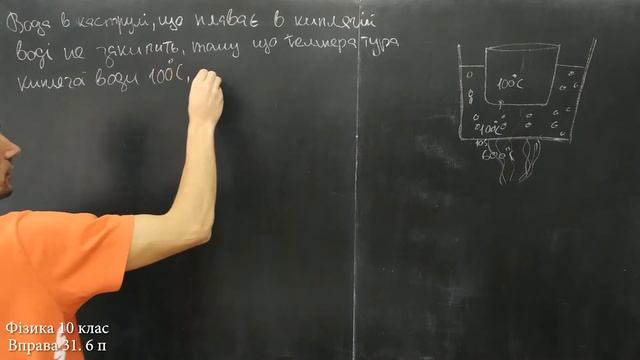 Вода в каструлі, що плаває в киплячій
воді не закипить, тому що температура
киплячої води 100°C,
100°C
100°C
600°C
Фізика 10 клас
Вправа 31. 6 п